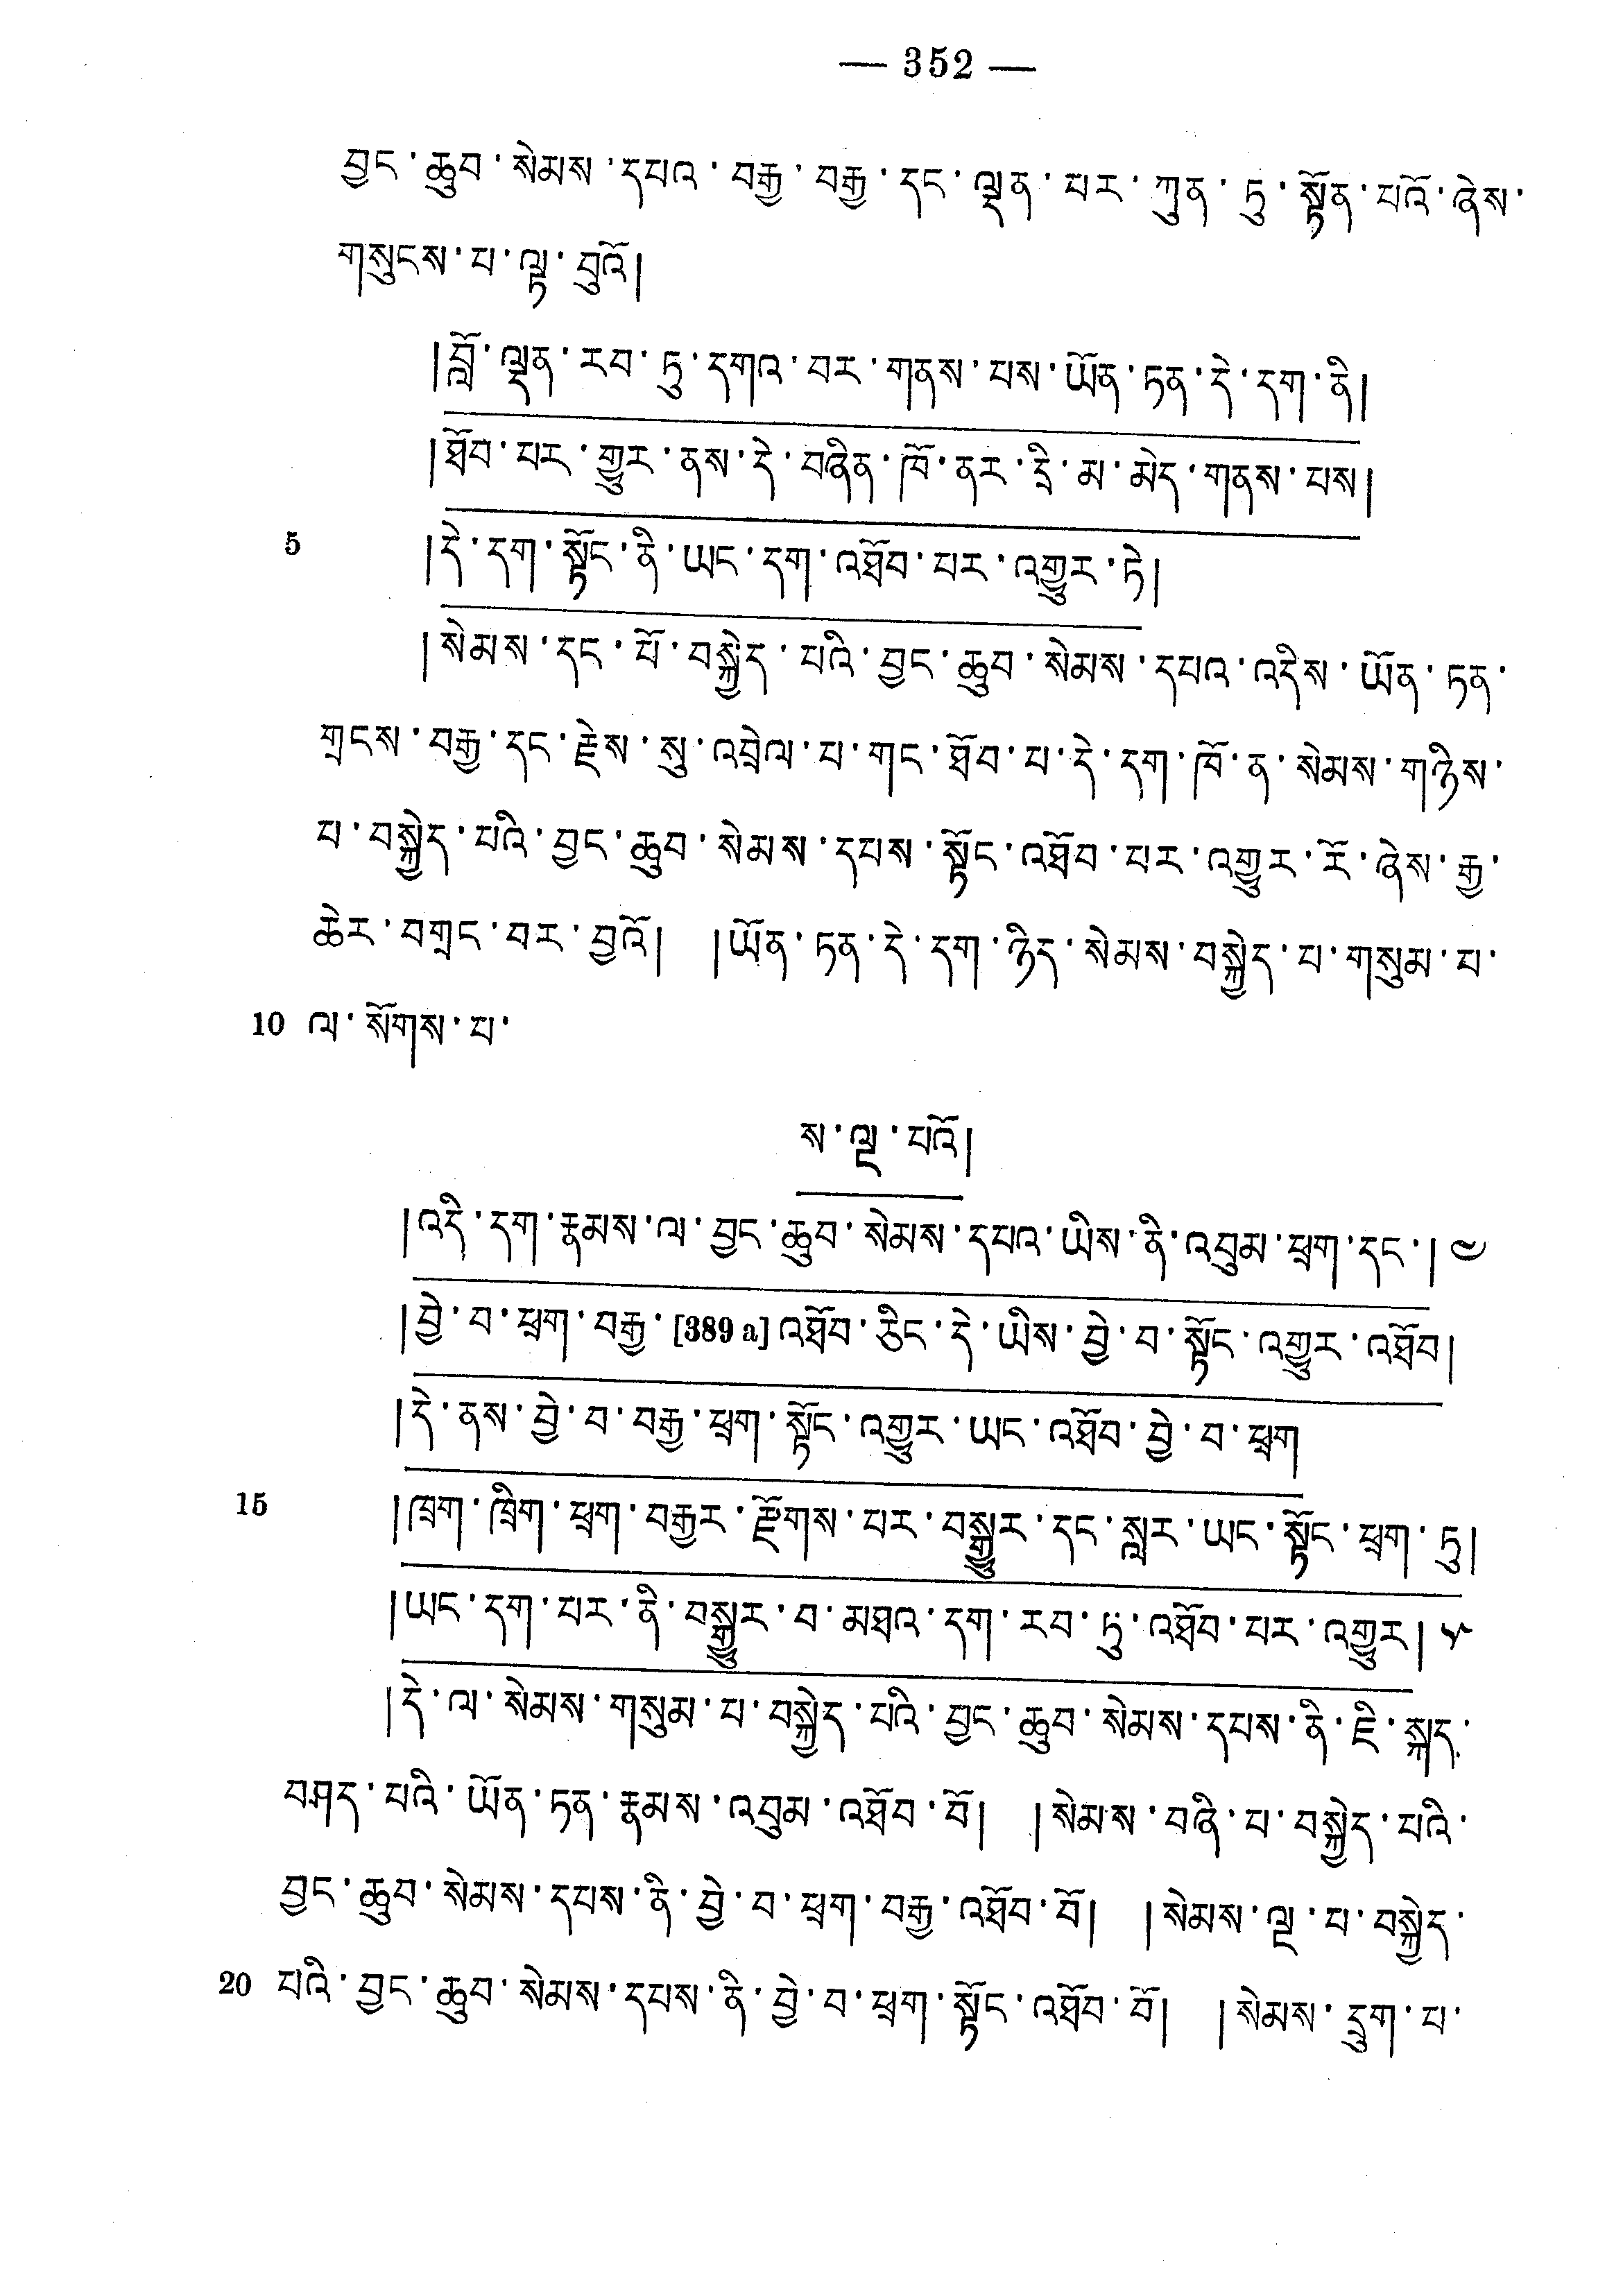 — 352 —
བྱང་ཆུབ་སེམས་དཔའ་བརྒྱ་བརྒྱ་དང་ལྡན་པར་ཀུན་ཏུ་སྟོན་པའོ་ཞེས་
གསུངས་པ་ལྟ་བུའོ།
།བློ་ལྡན་རབ་ཏུ་དགའ་བར་གནས་པས་ཡོན་ཏན་དེ་དག་ནི།
།ཐོབ་པར་གྱུར་ནས་དེ་བཞིན་ཁོ་ནར་དྲི་མ་མེད་གནས་པས།
5 །དེ་དག་སྟོང་ནི་ཡང་དག་འཐོབ་པར་འགྱུར་ཏེ།
།སེམས་དང་པོ་བསྐྱེད་པའི་བྱང་ཆུབ་སེམས་དཔའ་འདིས་ཡོན་ཏན་
གྲངས་བརྒྱ་དང་རྗེས་སུ་འབྲེལ་པ་གང་ཐོབ་པ་དེ་དག་ཁོ་ན་སེམས་གཉིས་
པ་བསྐྱེད་པའི་བྱང་ཆུབ་སེམས་དཔས་སྟོང་འཐོབ་པར་འགྱུར་རོ་ཞེས་རྒྱ་
ཆེར་བགྲང་བར་བྱའོ། །ཡོན་ཏན་དེ་དག་ཉིད་སེམས་བསྐྱེད་པ་གསུམ་པ་
10 ལ་སོགས་པ་
ས་ལྔ་པའོ།
།འདི་དག་རྣམས་ལ་བྱང་ཆུབ་སེམས་དཔའ་ཡིས་ནི་འབུམ་ཕྲག་དང་། ༤
།བྱེ་བ་ཕྲག་བརྒྱ་[389 a]འཐོབ་ཅིང་དེ་ཡིས་བྱེ་བ་སྟོང་འགྱུར་འཐོབ།
།དེ་ནས་བྱེ་བ་བརྒྱ་ཕྲག་སྟོང་འགྱུར་ཡང་འཐོབ་བྱེ་བ་ཕྲག
15 །ཁྲག་ཁྲིག་ཕྲག་བརྒྱར་རྫོགས་པར་བསྒྱུར་དང་སླར་ཡང་སྟོང་ཕྲག་ཏུ།
།ཡང་དག་པར་ནི་བསྒྱུར་བ་མཐའ་དག་རབ་ཏུ་འཐོབ་པར་འགྱུར། ༥
།དེ་ལ་སེམས་གསུམ་པ་བསྐྱེད་པའི་བྱང་ཆུབ་སེམས་དཔས་ནི་ཇི་སྐད་
བཤད་པའི་ཡོན་ཏན་རྣམས་འབུམ་འཐོབ་བོ། །སེམས་བཞི་པ་བསྐྱེད་པའི་
བྱང་ཆུབ་སེམས་དཔས་ནི་བྱེ་བ་ཕྲག་བརྒྱ་འཐོབ་བོ། །སེམས་ལྔ་པ་བསྐྱེད་
20 པའི་བྱང་ཆུབ་སེམས་དཔས་ནི་བྱེ་བ་ཕྲག་སྟོང་འཐོབ་བོ། །སེམས་དྲུག་པ་